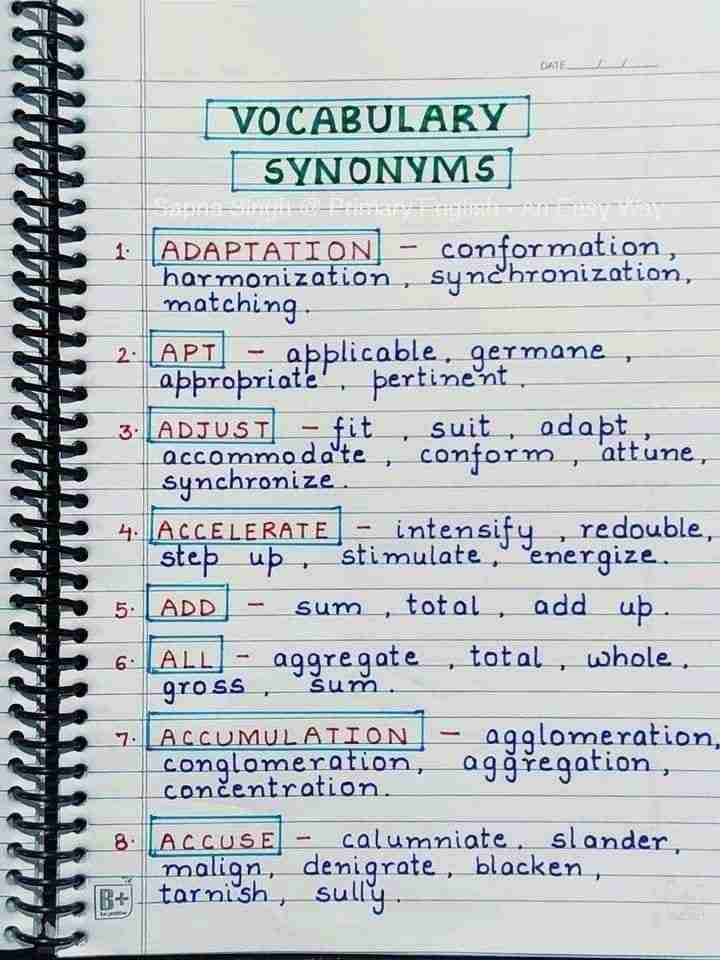 DATE ___/___/___
VOCABULARY
SYNONYMS
Sapna Singh @ Primary English - An Easy Way
1. ADAPTATION – conformation,
harmonization, synchronization,
matching.
2. APT – applicable, germane,
appropriate, pertinent.
3. ADJUST – fit, suit, adapt,
accommodate, conform, attune,
synchronize.
4. ACCELERATE – intensify, redouble,
step up, stimulate, energize.
5. ADD – sum, total, add up.
6. ALL – aggregate, total, whole,
gross, sum.
7. ACCUMULATION – agglomeration,
conglomeration, aggregation,
concentration.
8. ACCUSE – calumniate, slander,
malign, denigrate, blacken,
tarnish, sully.
B+